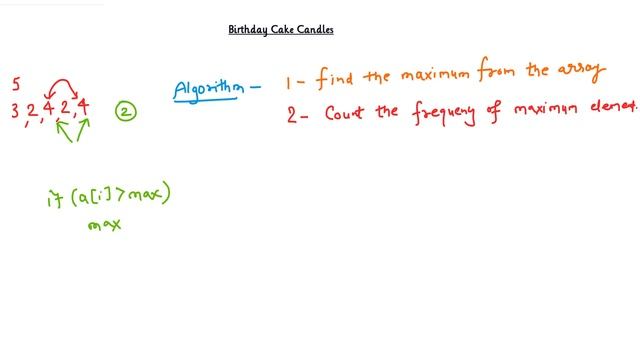 Birthday Cake Candles
5
3, 2, 4, 2, 4
2
Algorithm -
1 - find the maximum from the array
2 - Count the frequeny of maximum elemen
if (a[i] > max)
max